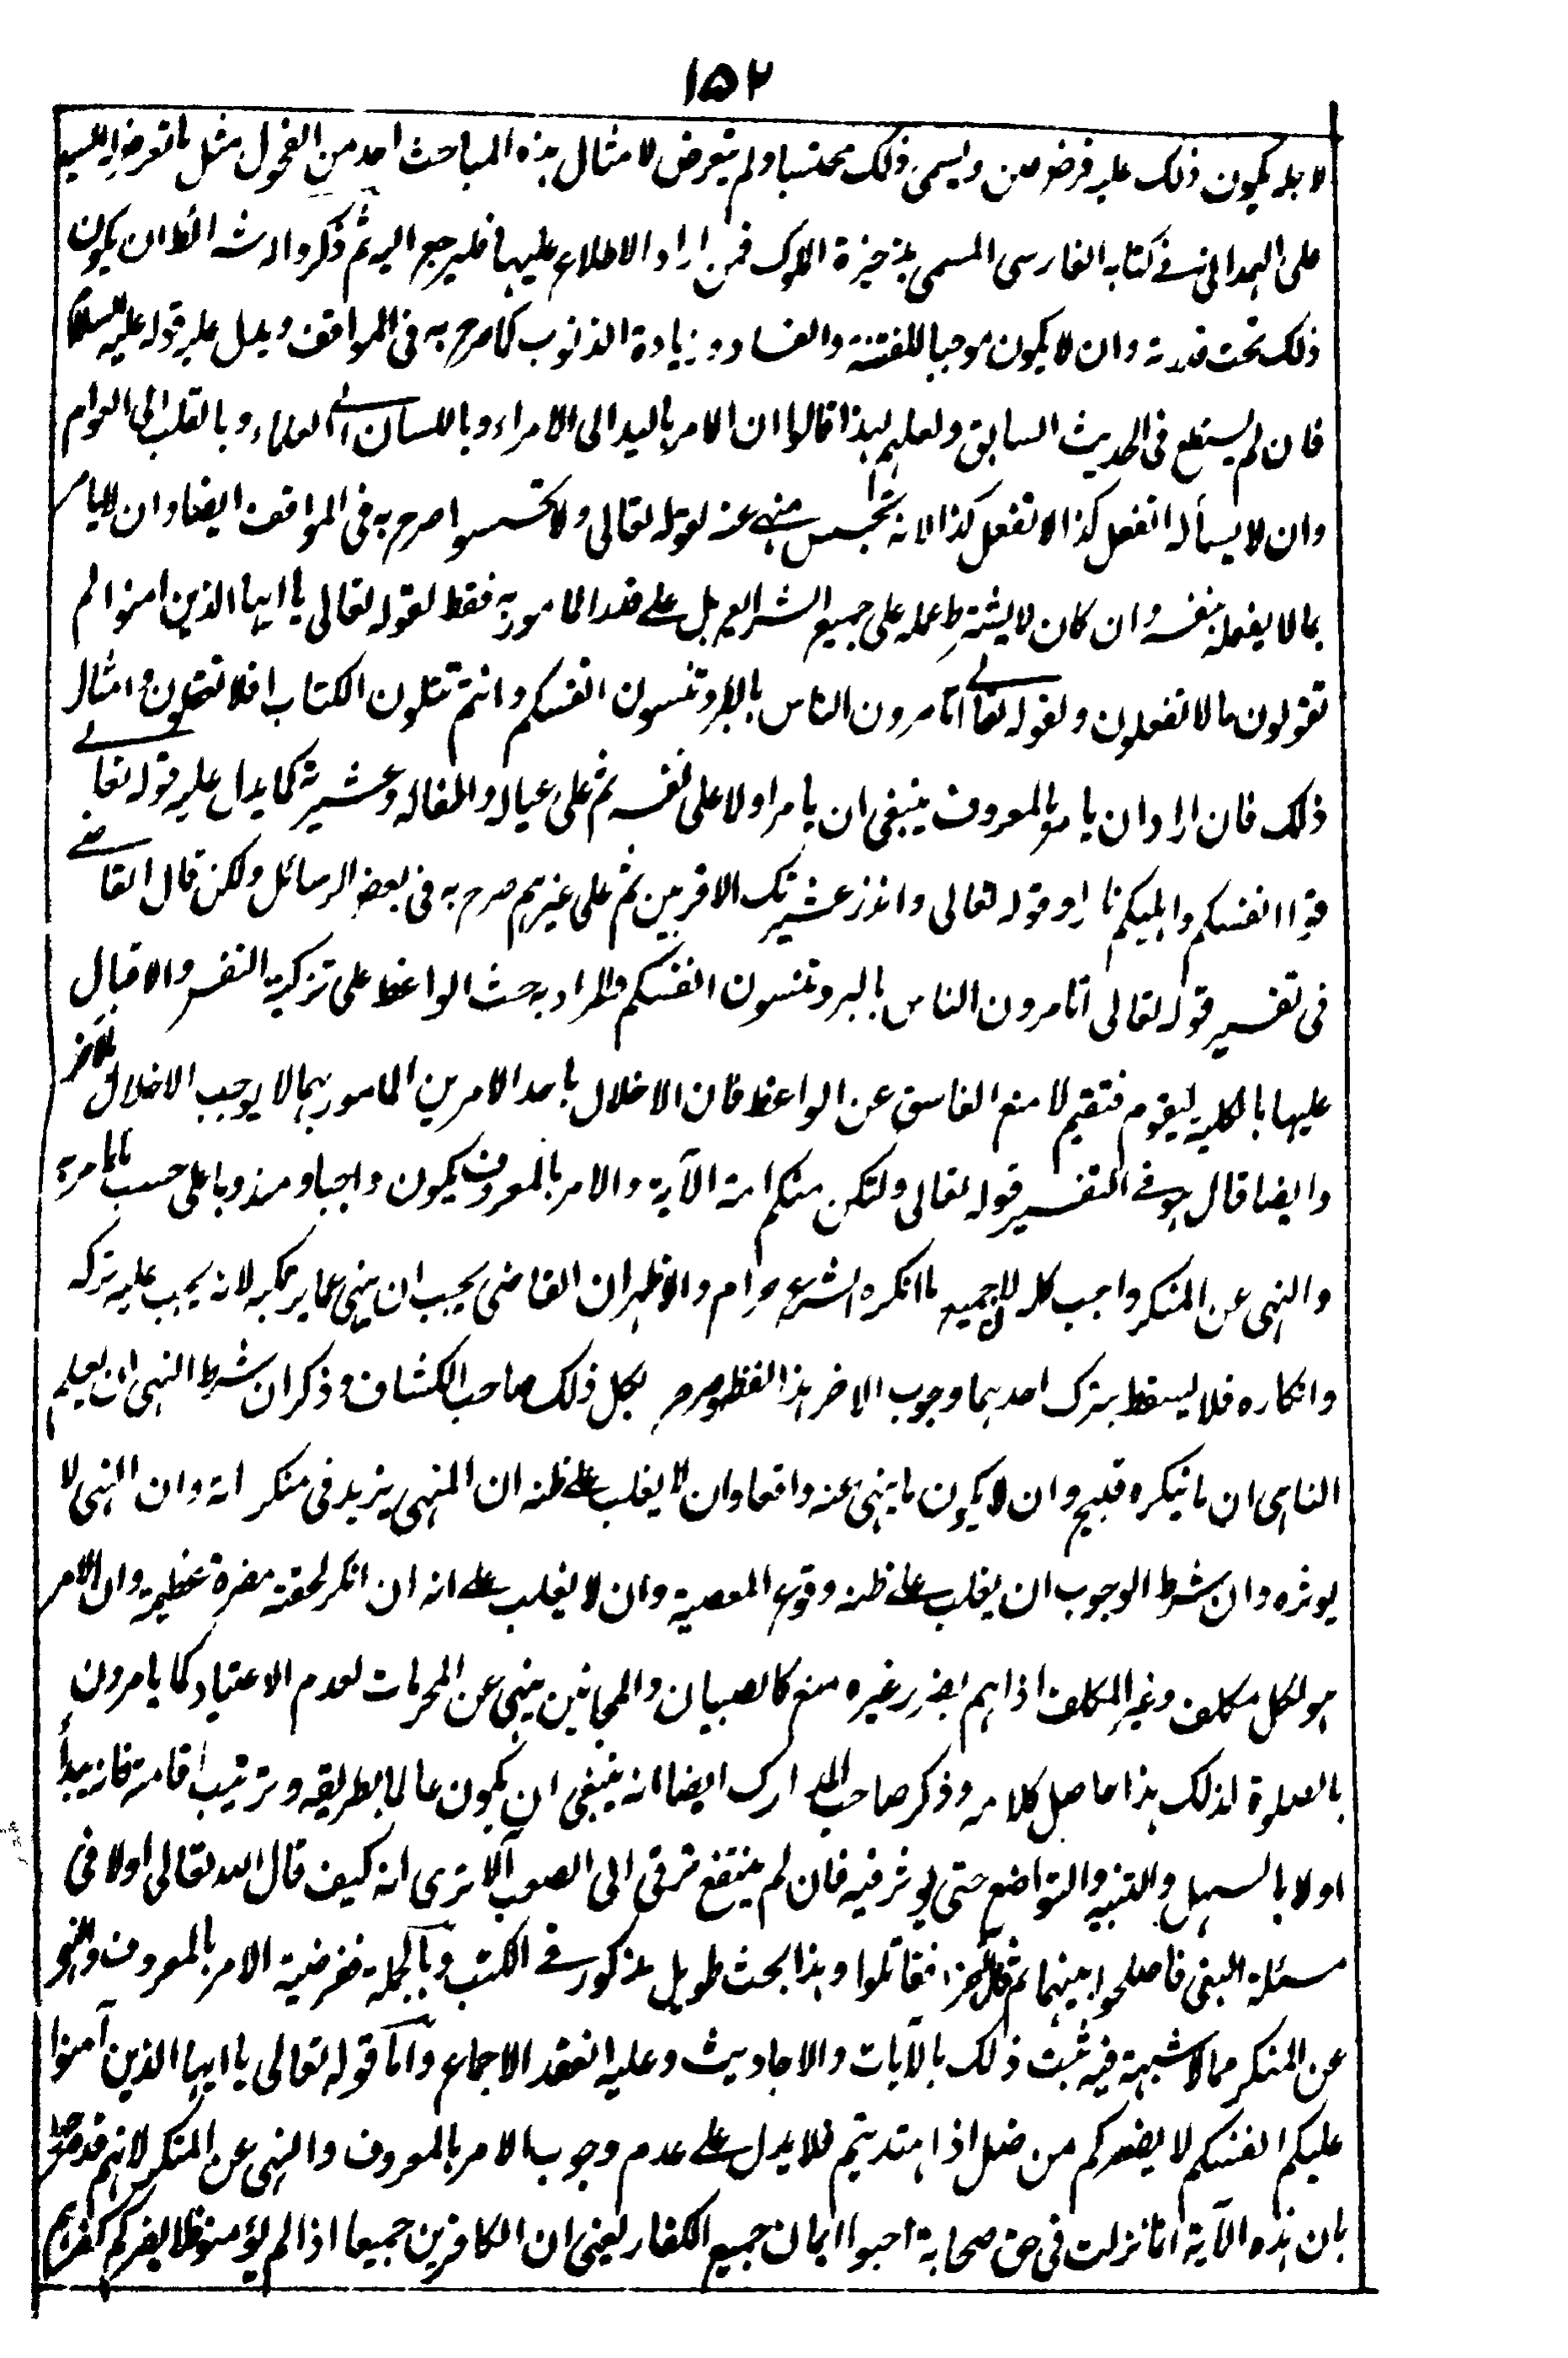 ١٥٢
لاجله يكون ذلك عليه فرض عين ويسمى ذلك محتسبا ولم يتعرض لامثال هذه المباحث احد من الفحول مثل ما تعرض له السيد
على الهمدانى فى كتابه الفارسى المسمى بذخيزة الملوك فمن اراد الاطلاع عليها فليرجع اليه ثم ذكروا له شرائط ان يكون
ذلك تحت قدرته وان لا يكون موجبا للفتنة والفساد وزيادة الذنوب كما صرح به فى المواقف ويدل عليه قوله عليه السلام
فان لم يستطع فى الحديث السابق ولعلهم لهذا قالوا ان الامر باليد الى الامراء وباللسان الى العلماء وبالقلب الى العوام
وان لا يسأله اتفعل كذا لا تفعل كذا لانه تجسس منهى عنه لقوله تعالى ولا تجسسوا صرح به فى المواقف ايضا وان لا يأمر
بما لا يفعله بنفسه وان كان لا يشترط عمله على جميع الشرايع بل على قدر المامور به فقط لقوله تعالى يا ايها الذين امنوا لم
تقولون ما لا تفعلون ولقوله تعالى اتامرون الناس بالبر وتنسون انفسكم وانتم تتلون الكتاب افلا تعقلون وامثال
ذلك فان اراد ان يامر بالمعروف ينبغى ان يامر اولا على نفسه ثم على عياله واطفاله وعشيرته كما يدل عليه قوله تعالى
قوا انفسكم واهليكم نارا وقوله تعالى وانذر عشيرتك الاقربين ثم على غيرهم صرح به فى بعض الرسائل ولكن قال القاضى
فى تفسير قوله تعالى اتامرون الناس بالبر وتنسون انفسكم والمراد به حث الواعظ على تزكية النفس والاقبال
عليها بالكلية ليقوم فتقيم لا منع الفاسق عن الواعظ فان الاخلال باحد الامرين المامور بهما لا يوجب الاخلال بالآخر
وايضا قال هو فى التفسير قوله تعالى ولتكن منكم امة الآية والامر بالمعروف يكون واجبا ومندوبا على حسب ما يامر به
والنهى عن المنكر واجب كله لان جميع ما انكره الشرع حرام والاظهر ان العاصى يجب ان ينهى عما يرتكبه لانه يجب عليه تركه
وانكاره فلا يسقط بترك احدهما وجوب الاخر هذا لفظه وصرح بكل ذلك صاحب الكشاف وذكر ان شرط النهى ان يعلم
الناهى ان ما ينكره قبيح وان لا يكون ما ينهى عنه واقعا وان لا يغلب على ظنه ان المنهى يزيد فى منكراته وان النهى لا
يوثره وان شرط الوجوب ان يغلب على ظنه وقوع المعصية وان لا يغلب على انه ان انكر لحقته مضرة عظيمة وان الامر
هو لكل مكلف وغير المكلف اذا هم بضرر غيره منع كالصبيان والمجانين ينهى عن المحرمات لعدم الاعتياد كما يامرون
بالصلوة لذلك هذا حاصل كلامه وذكر صاحب المدارك ايضا انه ينبغى ان يكون عالما بطريقه وترتيب اقامته فانه يبدأ
اولا بالسهل والتنبيه والتواضع حتى يوثر فيه فان لم ينتفع ترقى الى الصعب ألا ترى انه كيف قال الله تعالى اولا فى
مسئلة البغى فاصلحوا بينهما ثم قال فقاتلوا وهذا بحث طويل مذكور فى الكتب وبالجملة ففرضية الامر بالمعروف والنهى
عن المنكر مما لا شبهة فيه ثبت ذلك بالآيات والاحاديث وعليه انعقد الاجماع واما قوله تعالى يا ايها الذين آمنوا
عليكم انفسكم لا يضركم من ضل اذا اهتديتم فلا يدل على عدم وجوب الامر بالمعروف والنهى عن المنكر لانهم قد صرحوا
بان هذه الآية انما نزلت فى حق صحابة احبوا ايمان جميع الكفار يعنى ان الكافرين جميعا اذا لم يؤمنوا فلا يضركم كفرهم